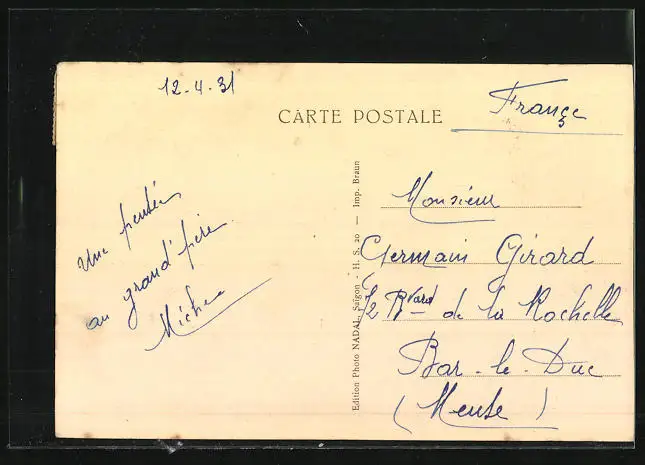 12-4-31
CARTE POSTALE
France
Une pensée
au grand'père
Michel
Edition Photo NADAL, Saïgon - H. S. 20 — Imp. Braun
Monsieur
Germain Girard
72 Bvard de la Rochelle
Bar-le-Duc
(Meuse)